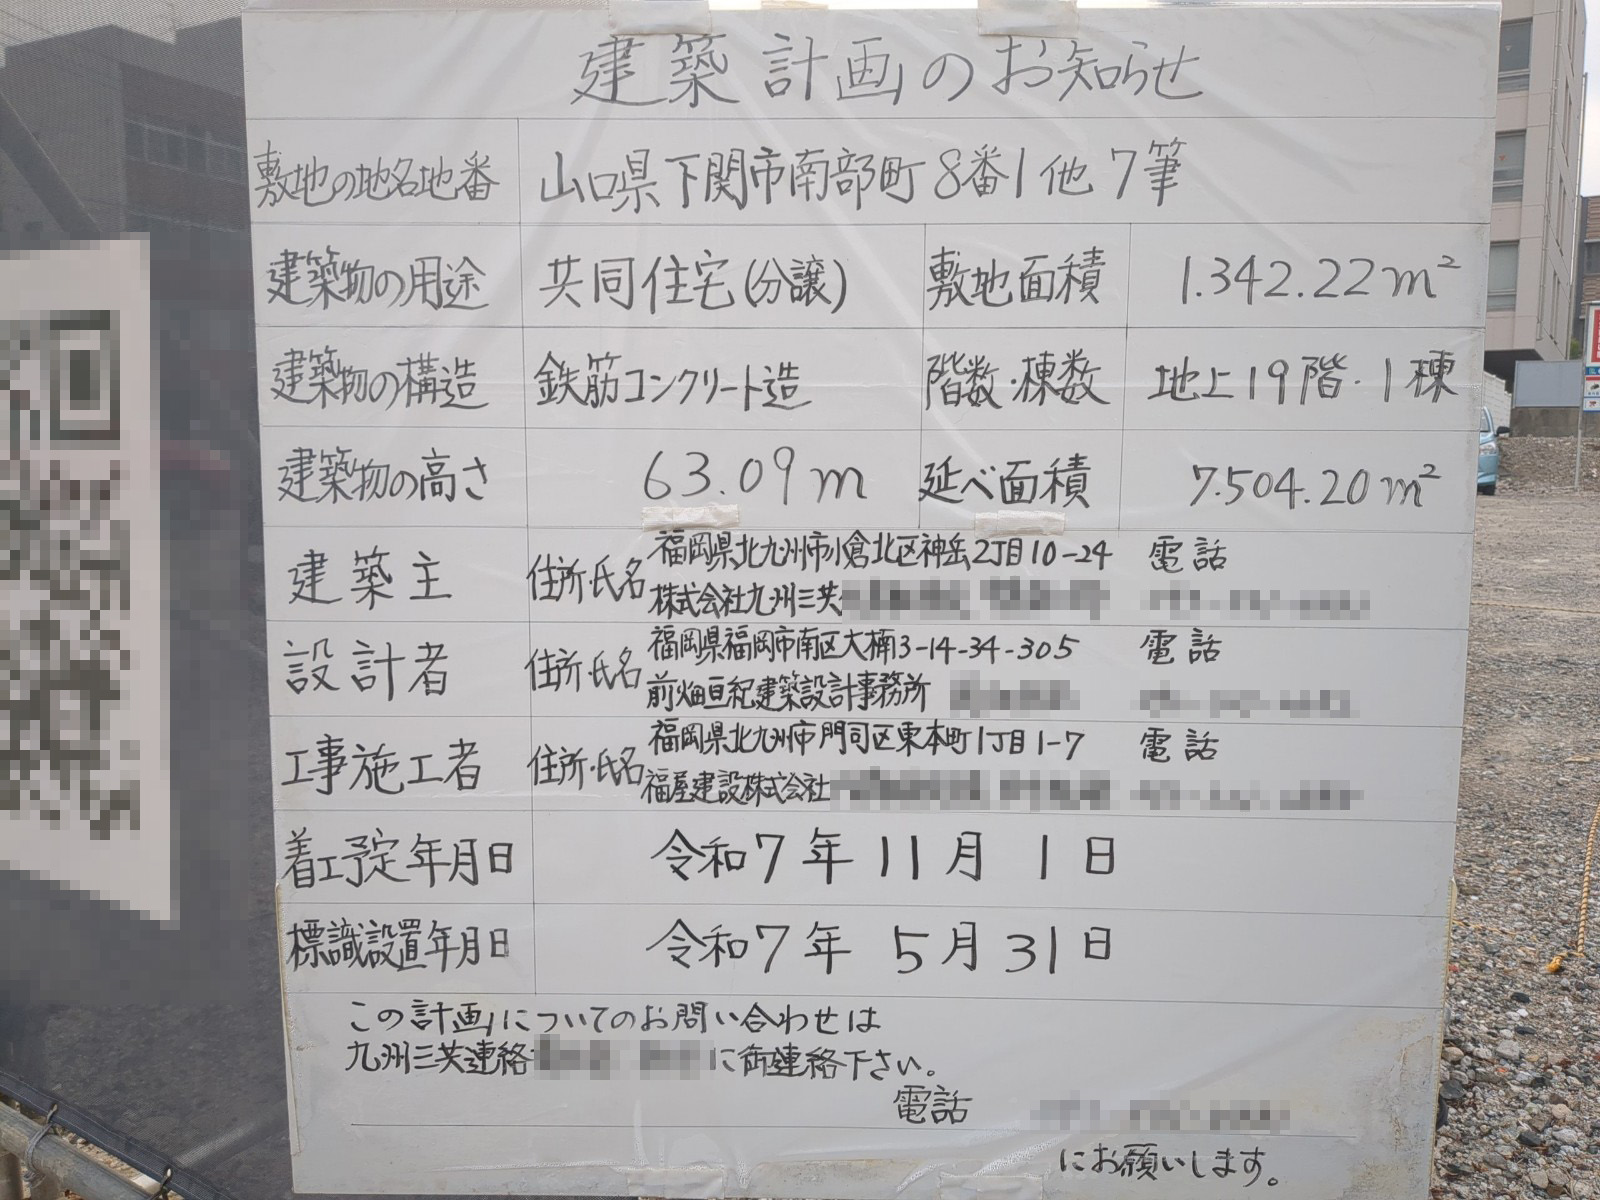 建築計画のお知らせ
敷地の地名地番 山口県下関市南部町8番1他7筆
建築物の用途 共同住宅(分譲) 敷地面積 1.342.22m²
建築物の構造 鉄筋コンクリート造 階数・棟数 地上19階・1棟
建築物の高さ 63.09m 延べ面積 7.504.20m²
建築主 住所・氏名 福岡県北九州市小倉北区神岳2丁目10-24 電話
株式会社九州三共
設計者 住所・氏名 福岡県福岡市南区大楠3-14-34-305 電話
前畑亘紀建築設計事務所
工事施工者 住所・氏名 福岡県北九州市門司区東本町1丁目1-7 電話
福屋建設株式会社
着工予定年月日 令和7年11月1日
標識設置年月日 令和7年5月31日
この計画についてのお問い合わせは
九州三共連絡 に御連絡下さい。
電話
にお願いします。